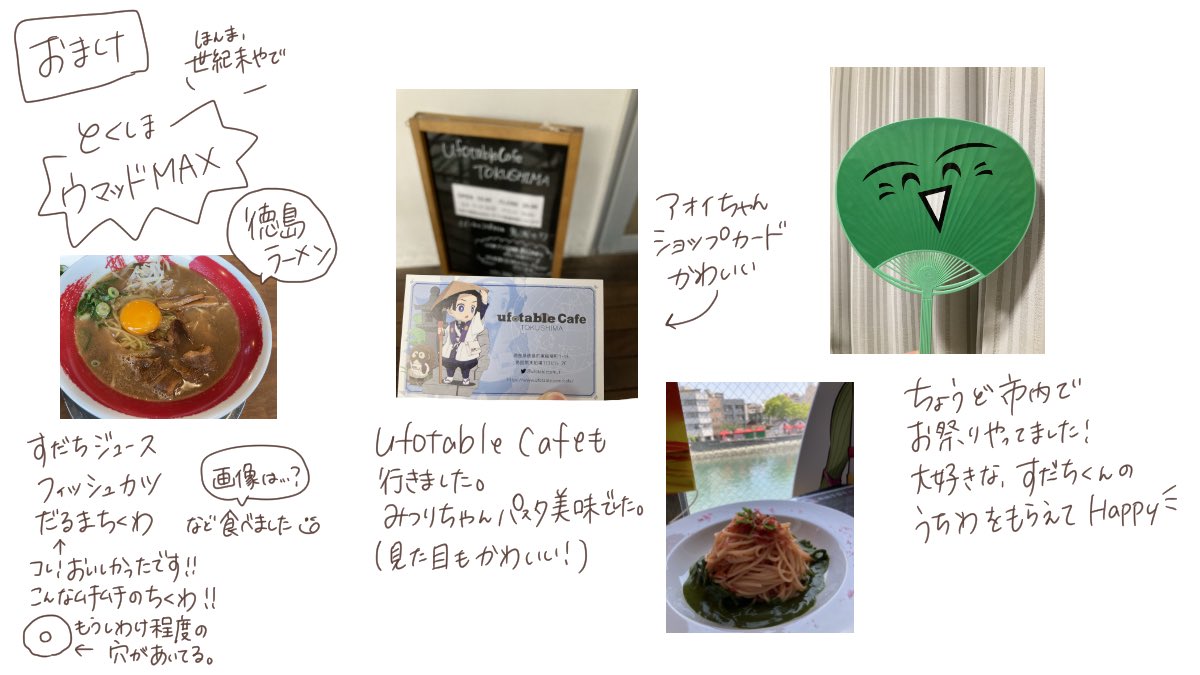 おまけ
ほんま、
世紀末やで
とくしま
ウマッドMAX
徳島
ラーメン
すだちジュース
フィッシュカツ
だるまちくわ
画像は…?
など食べました
コレ!おいしかったです!!
こんなムチムチのちくわ!!
もうしわけ程度の
穴があいてる。
ufotable Cafe
TOKUSHIMA
ufotable Cafe
TOKUSHIMA
ufotable Cafeも
行きました。
みつりちゃんパスタ美味でした。
(見た目もかわいい!)
アオイちゃん
ショップカード
かわいい
ちょうど市内で
お祭りやってました!
大好きな、すだちくんの
うちわをもらえてHappy